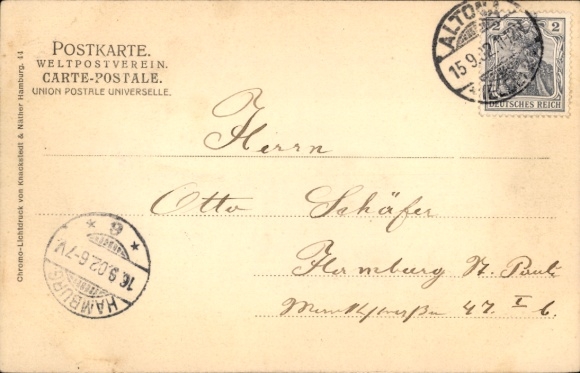 POSTKARTE.
WELTPOSTVEREIN.
CARTE-POSTALE.
UNION POSTALE UNIVERSELLE.
ALTONA
15.9.02.
2 2
DEUTSCHES REICH
Chromo-Lichtdruck von Knackstedt & Näther Hamburg. 44
Herrn
Otto Schäfer
Hamburg St. Pauli
47. I b.
* 8 *
16.9.02.6-7V.
HAMBURG